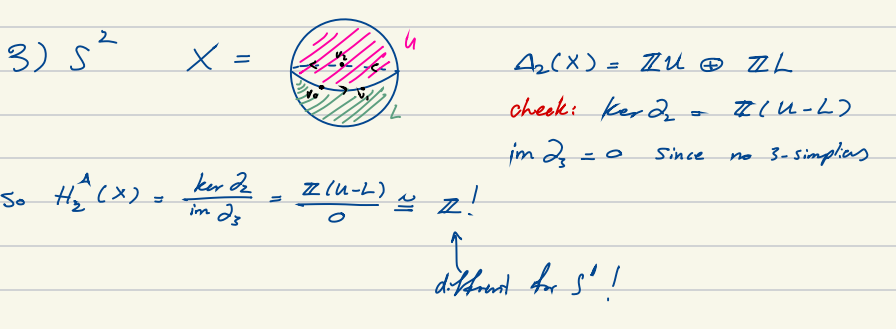 3) S² X = U Δ₂(X) = ℤU ⊕ ℤL
v₂
v₀ v₁
L
check: ker ∂₂ = ℤ(U-L)
im ∂₃ = 0 since no 3-simplices
So H₂^Δ(X) = ker ∂₂ / im ∂₃ = ℤ(U-L) / 0 ≅ ℤ!
different for S¹!